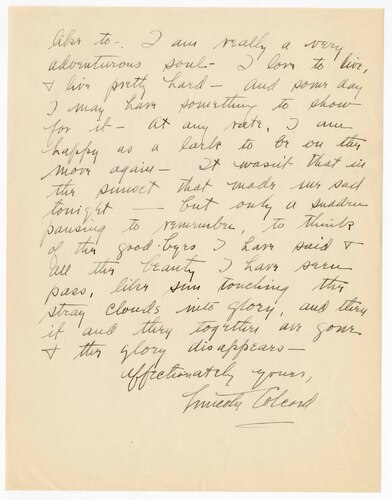 like to-. I am really a very
adventurous soul- I love to live,
& live pretty hard- And some day
I may have something to show
for it- At any rate, I am
happy as a lark to be on the
move again- It wasn't that in
the sunset that made me sad
tonight - but only a sudden
pausing to remember, to think
of the good-byes I have said &
all the beauty I have seen
pass, like sun touching the
stray clouds into glory, and then
it and they together are gone
& the glory disappears-
Affectionately yours,
Lincoln Colcord